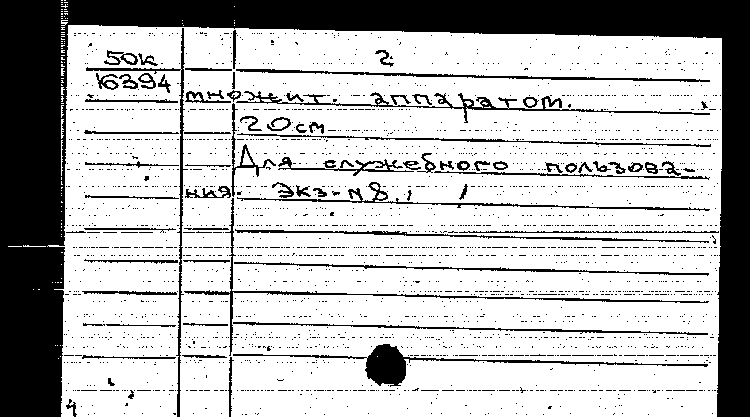 50к 2
16394
множит. аппаратом.
20 см
Для служебного пользова-
ния. Экз-N8.
4